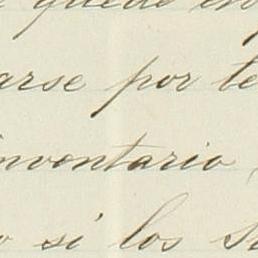 quede
arse por te
inventario
o si los